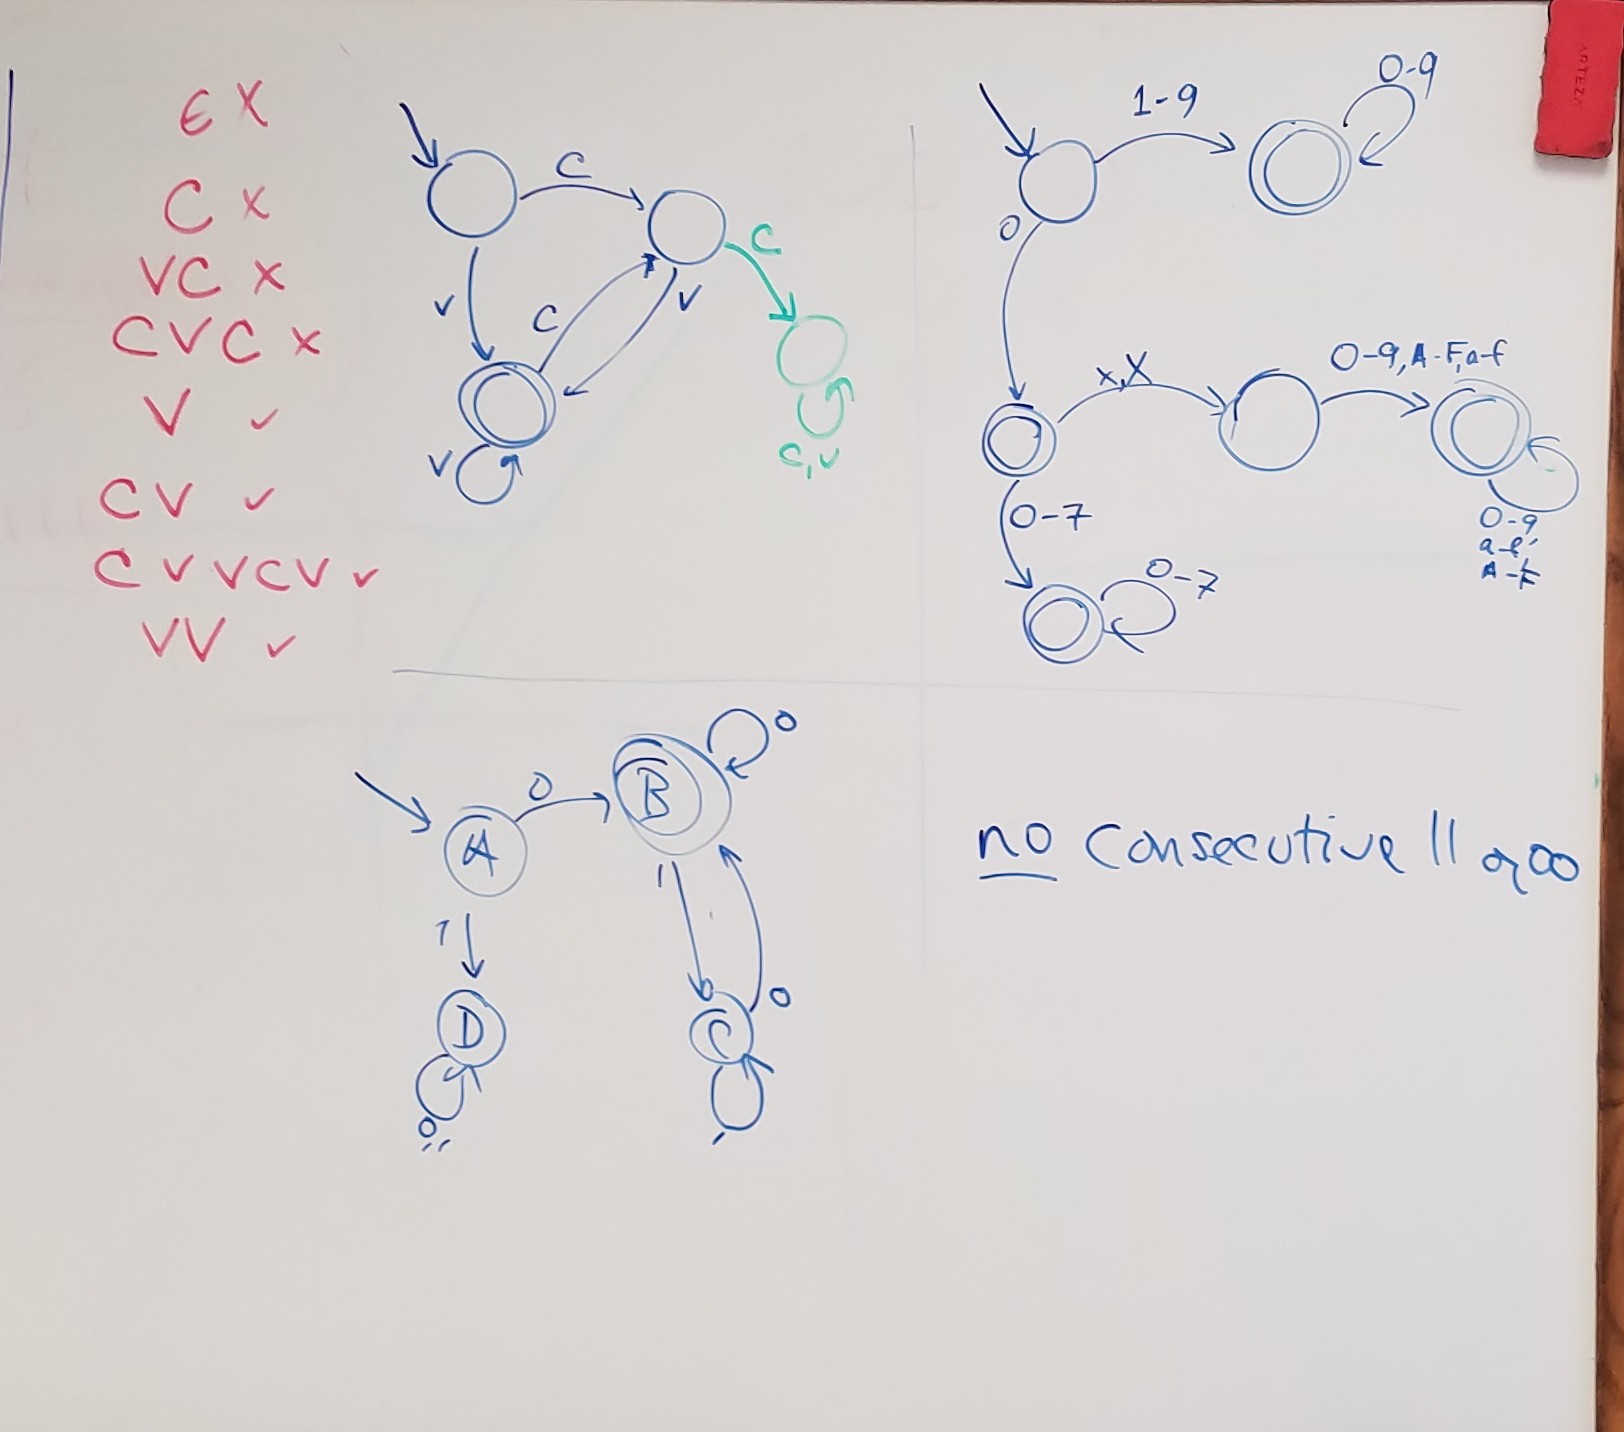 ϵ X
C X
VC X
CVC X
V ✓
CV ✓
CVVCV ✓
VV ✓
C
V
C
V
V
C
C,V
1-9
0-9
0
x,X
0-9,A-F,a-f
0-9
a-f,
A-F
0-7
0-7
A
0
B
0
1
1
0
D
C
0,1
1
no consecutive 11 or 00
ARTEZA